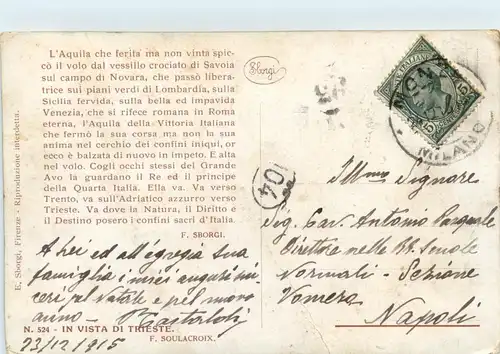 L'Aquila che ferita ma non vinta spic-
cò il volo dal vessillo crociato di Savoia
sul campo di Novara, che passò libera-
trice sui piani verdi di Lombardia, sulla
Sicilia fervida, sulla bella ed impavida
Venezia, che si rifece romana in Roma
eterna, l'Aquila della Vittoria Italiana
che fermò la sua corsa ma non la sua
anima nel cerchio dei confini iniqui, or
ecco è balzata di nuovo in impeto. E alta
nel volo. Cogli occhi stessi del Grande
Avo la guardano il Re ed il principe
della Quarta Italia. Ella va. Va verso
Trento, va sull'Adriatico azzurro verso
Trieste. Va dove la Natura, il Diritto e
il Destino posero i confini sacri d'Italia.
F. SBORGI.
E. Sborgi, Firenze - Riproduzione interdetta.
A Lei ed all'egregia Sua
famiglia i miei auguri sin-
ceri pel Natale e pel nuovo
anno -
N. 524 - IN VISTA DI TRIESTE.
F. SOULACROIX.
23/12/1915
Sborgi
MILANO
15
104
Ill.mo Signore
Sig. Cav. Antonio Pasquale
Direttore nelle RR. Scuole
Normali - Sezione
Vomero
Napoli